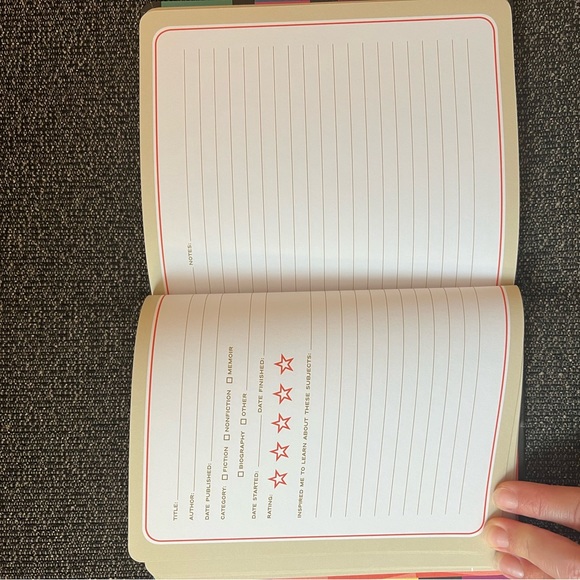 TITLE:
AUTHOR:
DATE PUBLISHED:
CATEGORY: FICTION NONFICTION MEMOIR
BIOGRAPHY OTHER
DATE STARTED: DATE FINISHED:
RATING:
INSPIRED ME TO LEARN ABOUT THESE SUBJECTS:
NOTES: